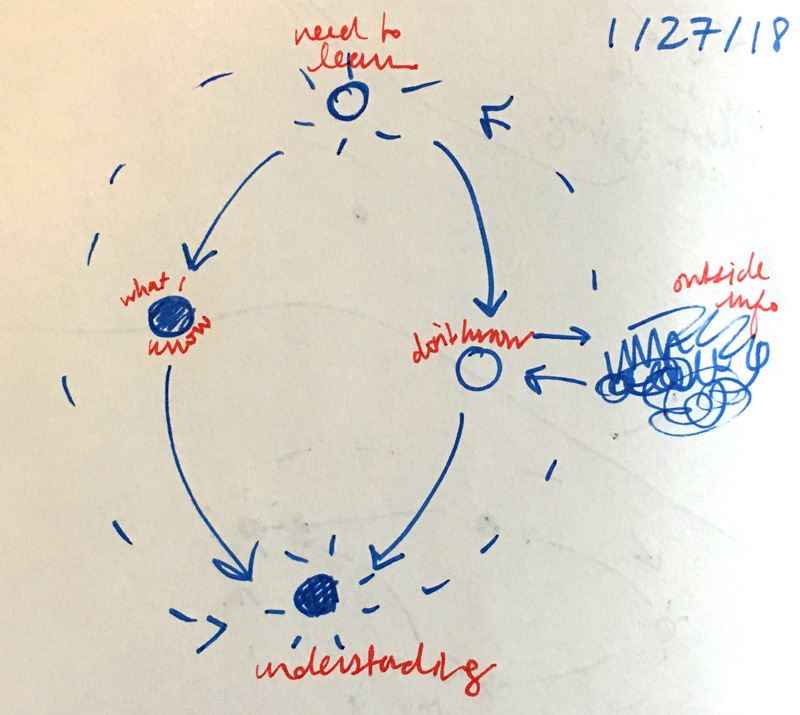 1/27/18
need to
learn
what I
know
don't know
outside
info
understanding